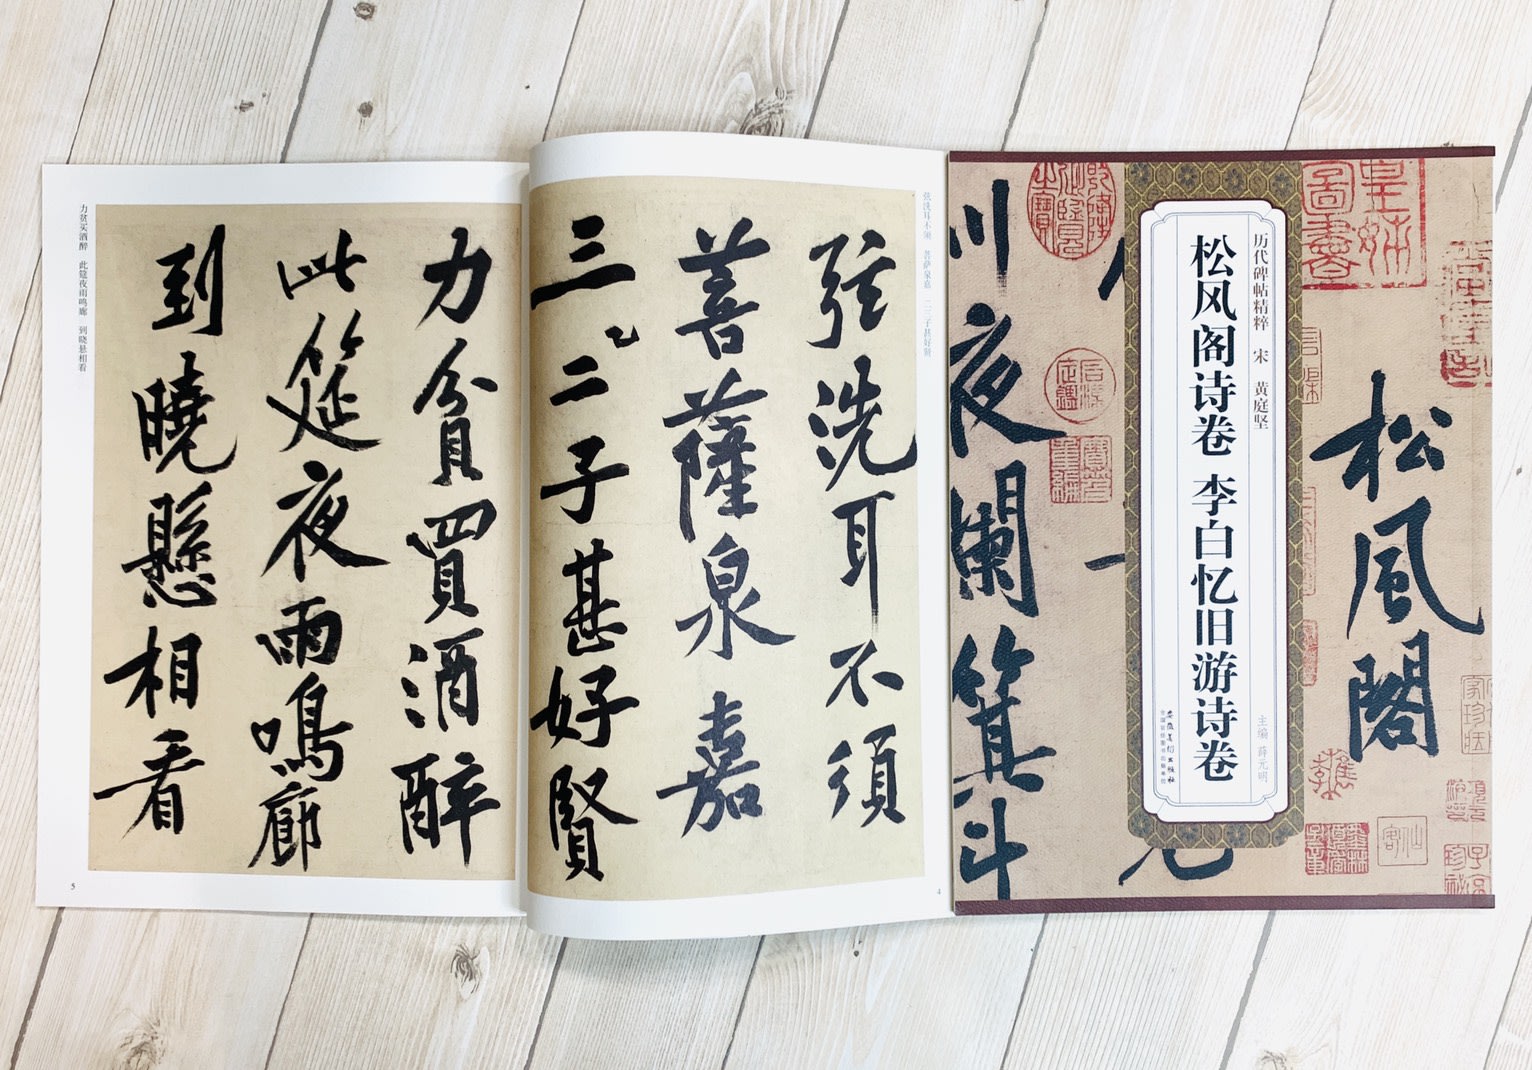 松風閣
皇姊圖書
历代碑帖精粹 宋 黄庭坚
松风阁诗卷 李白忆旧游诗卷
主编 薛元明
安徽美术出版社
全国百佳图书出版单位
川夜闌箕斗
弦洗耳不须 菩萨泉嘉 二三子甚好贤
弦洗耳不須
菩薩泉嘉
三二子甚好賢
4
力貧買酒醉
此筵夜雨鳴廊
到曉懸相看
力贫买酒醉 此筵夜雨鸣廊 到晓悬相看
5